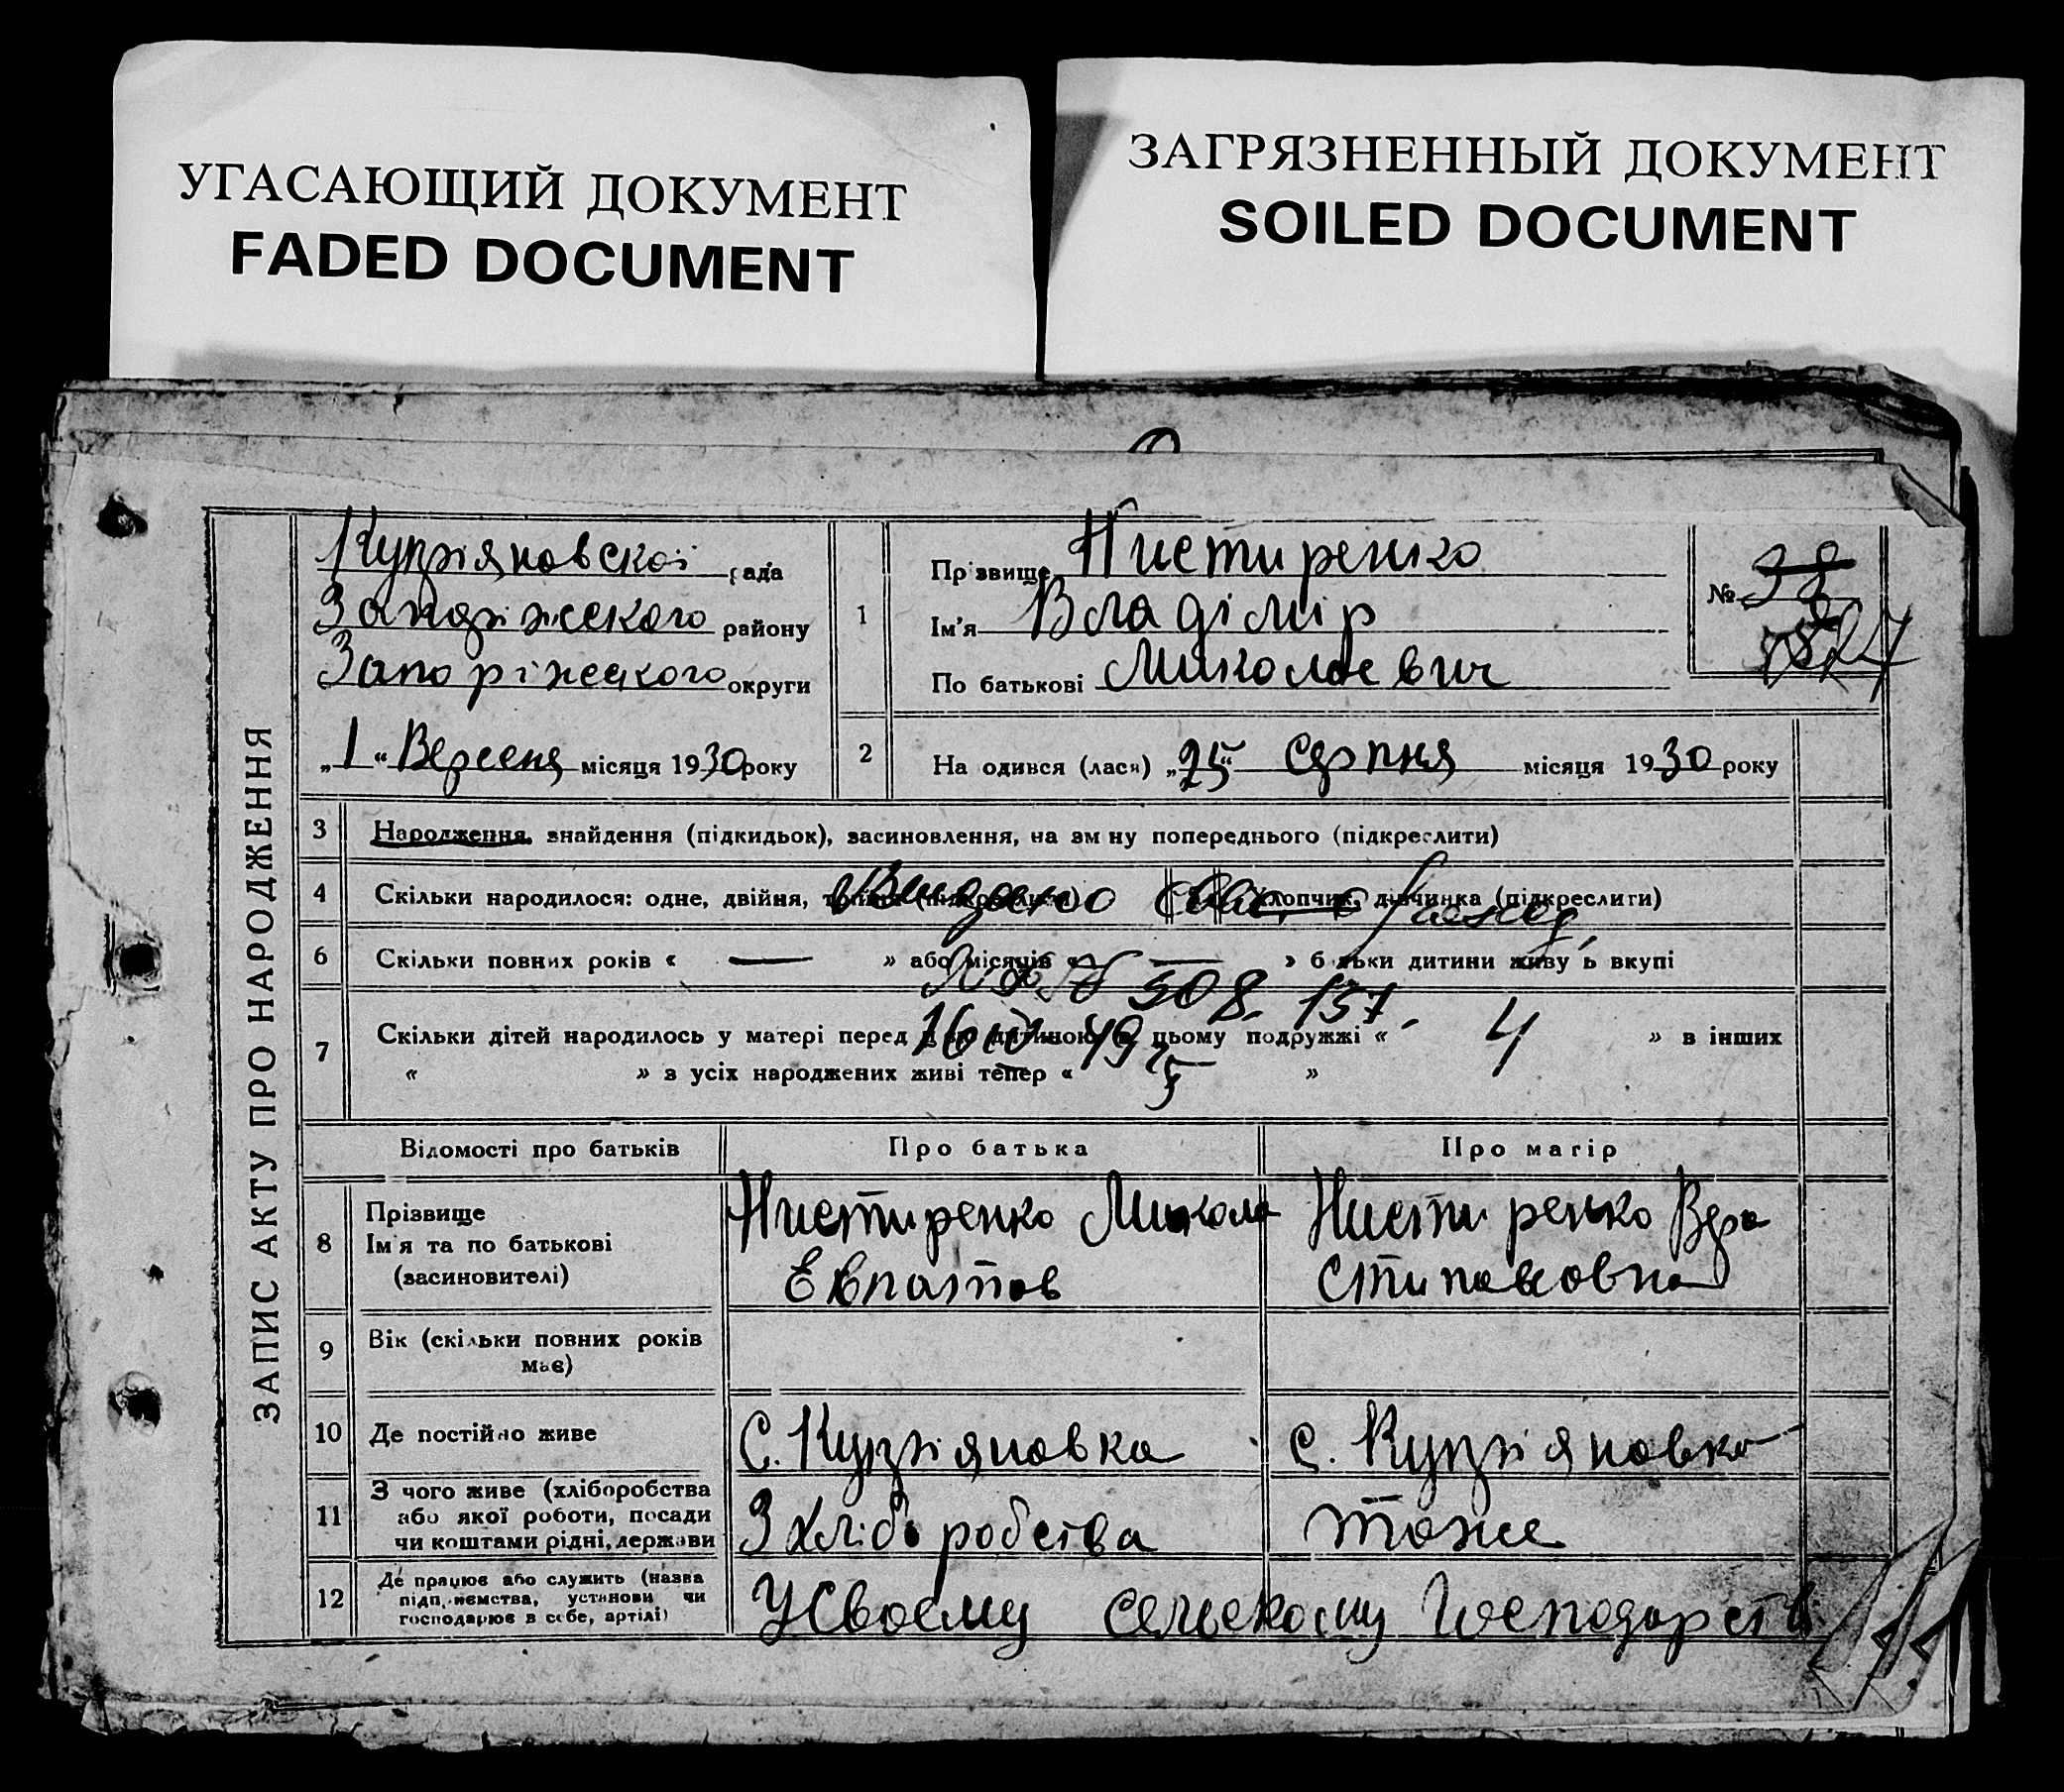 УГАСАЮЩИЙ ДОКУМЕНТ
FADED DOCUMENT
ЗАГРЯЗНЕННЫЙ ДОКУМЕНТ
SOILED DOCUMENT
ЗАПИС АКТУ ПРО НАРОДЖЕННЯ
Купріяновской рада
району
Запоріжського округи
„1“ Вересня місяця 1930 року
1
Прізвище Нистиренко
Ім'я Владімір
По батькові Миколаевич
№ 38
827
2 На одився (лася) „25“ серпня місяця 1930 року
3 Народження, знайдення (підкидьок), засиновлення, на зм ну попереднього (підкреслити)
4 Скільки народилося: одне, двійня, хлопчик, дівчинка (підкреслити)
Видано
6 Скільки повних років « — » або місяців « — » б льки дитини живу ь вкупі
508. 157.
7 Скільки дітей народилось у матері перед цьому подружжі « 4 » в інших
« » з усіх народжених живі тепер « »
Відомості про батьків Про батька Про матір
8 Прізвище
Ім'я та по батькові
(засиновителі)
Нистиренко Микола
Евпатов
Нистиренко Вера
Стипановна
9 Вік (скільки повних років
має)
10 Де постійно живе с. Купріяновка с. Купріяновка
11 З чого живе (хліборобства
або якої роботи, посади
чи коштами рідні, держави
З хліборобства тоже
12 Де працює або служить (назва
підприємства, установи чи
господарює в себе, артілі)
У Своему сельскому господарстві